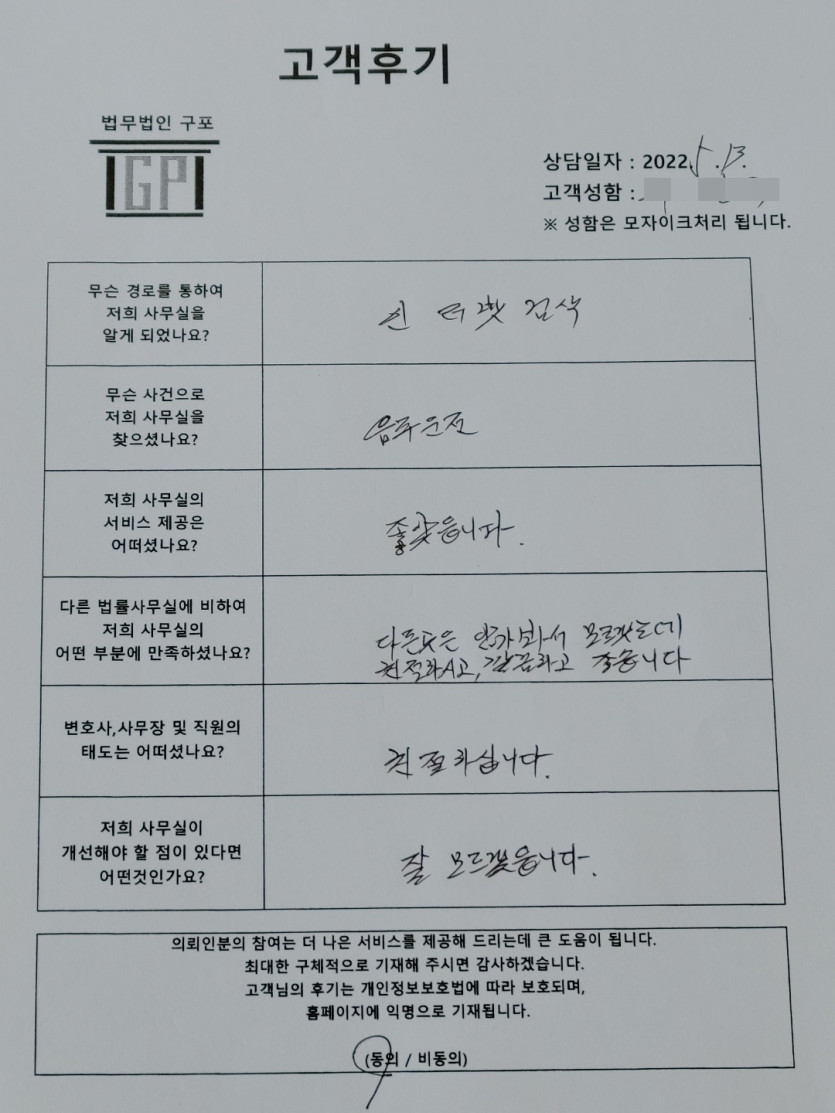 고객후기
법무법인 구포
IGPI
상담일자 : 2022. 5. 13.
고객성함 :
※ 성함은 모자이크처리 됩니다.
무슨 경로를 통하여
저희 사무실을
알게 되었나요?
인터넷 검색
무슨 사건으로
저희 사무실을
찾으셨나요?
음주운전
저희 사무실의
서비스 제공은
어떠셨나요?
좋았읍니다.
다른 법률사무실에 비하여
저희 사무실의
어떤 부분에 만족하셨나요?
다른곳은 안가봐서 모르겠는데
친절하시고, 깔끔하고 좋습니다
변호사,사무장 및 직원의
태도는 어떠셨나요?
친절하십니다.
저희 사무실이
개선해야 할 점이 있다면
어떤것인가요?
잘 모르겠읍니다.
의뢰인분의 참여는 더 나은 서비스를 제공해 드리는데 큰 도움이 됩니다.
최대한 구체적으로 기재해 주시면 감사하겠습니다.
고객님의 후기는 개인정보보호법에 따라 보호되며,
홈페이지에 익명으로 기재됩니다.
(동의 / 비동의)